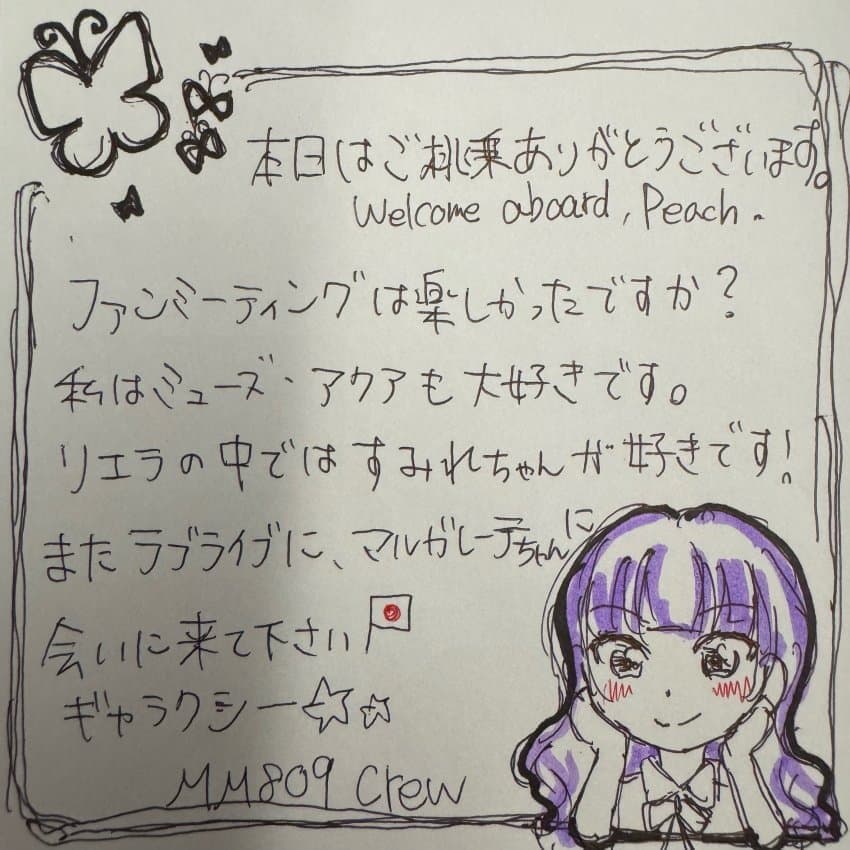 本日はご桃乗ありがとうございます。
Welcome aboard, Peach.
ファンミーティングは楽しかったですか?
私はミューズ・アクアも大好きです。
リエラの中ではすみれちゃんが好きです!
またラブライブに、マルガレーテちゃんに
会いに来て下さい
ギャラクシー☆☆
MM809 Crew